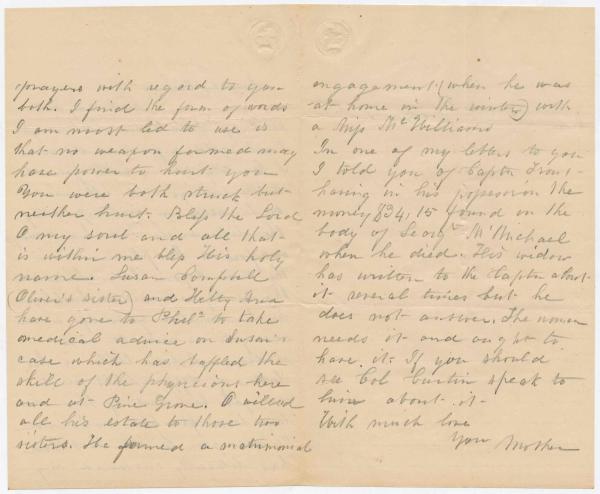 prayers with regard to you
both. I find the form of words
I am most led to use is
that no weapon formed may
have power to hurt you
You were both struck but
neither hurt. Bless the Lord
O my soul and all that
is within me bless His holy
name. Susan Campbell
(Oliver's sister) and Hetty Ann
have gone to Phila to take
medical advice on Susan's
case which has baffled the
skill of the physicians here
and at Pine Grove. O willed
all his estate to those two
sisters. He formed a matrimonial
engagement (when he was
at home in the winter) with
a Miss McWilliams
In one of my letters to you
I told you of Captn
having in his possession the
money $34,15 found on the
body of M'Michael
when he died. His widow
has written to the Captn about
it several times but he
does not answer. The woman
needs it and ought to
have it. If you should
see Col Curtin speak to
him about it-
With much love
Your Mother